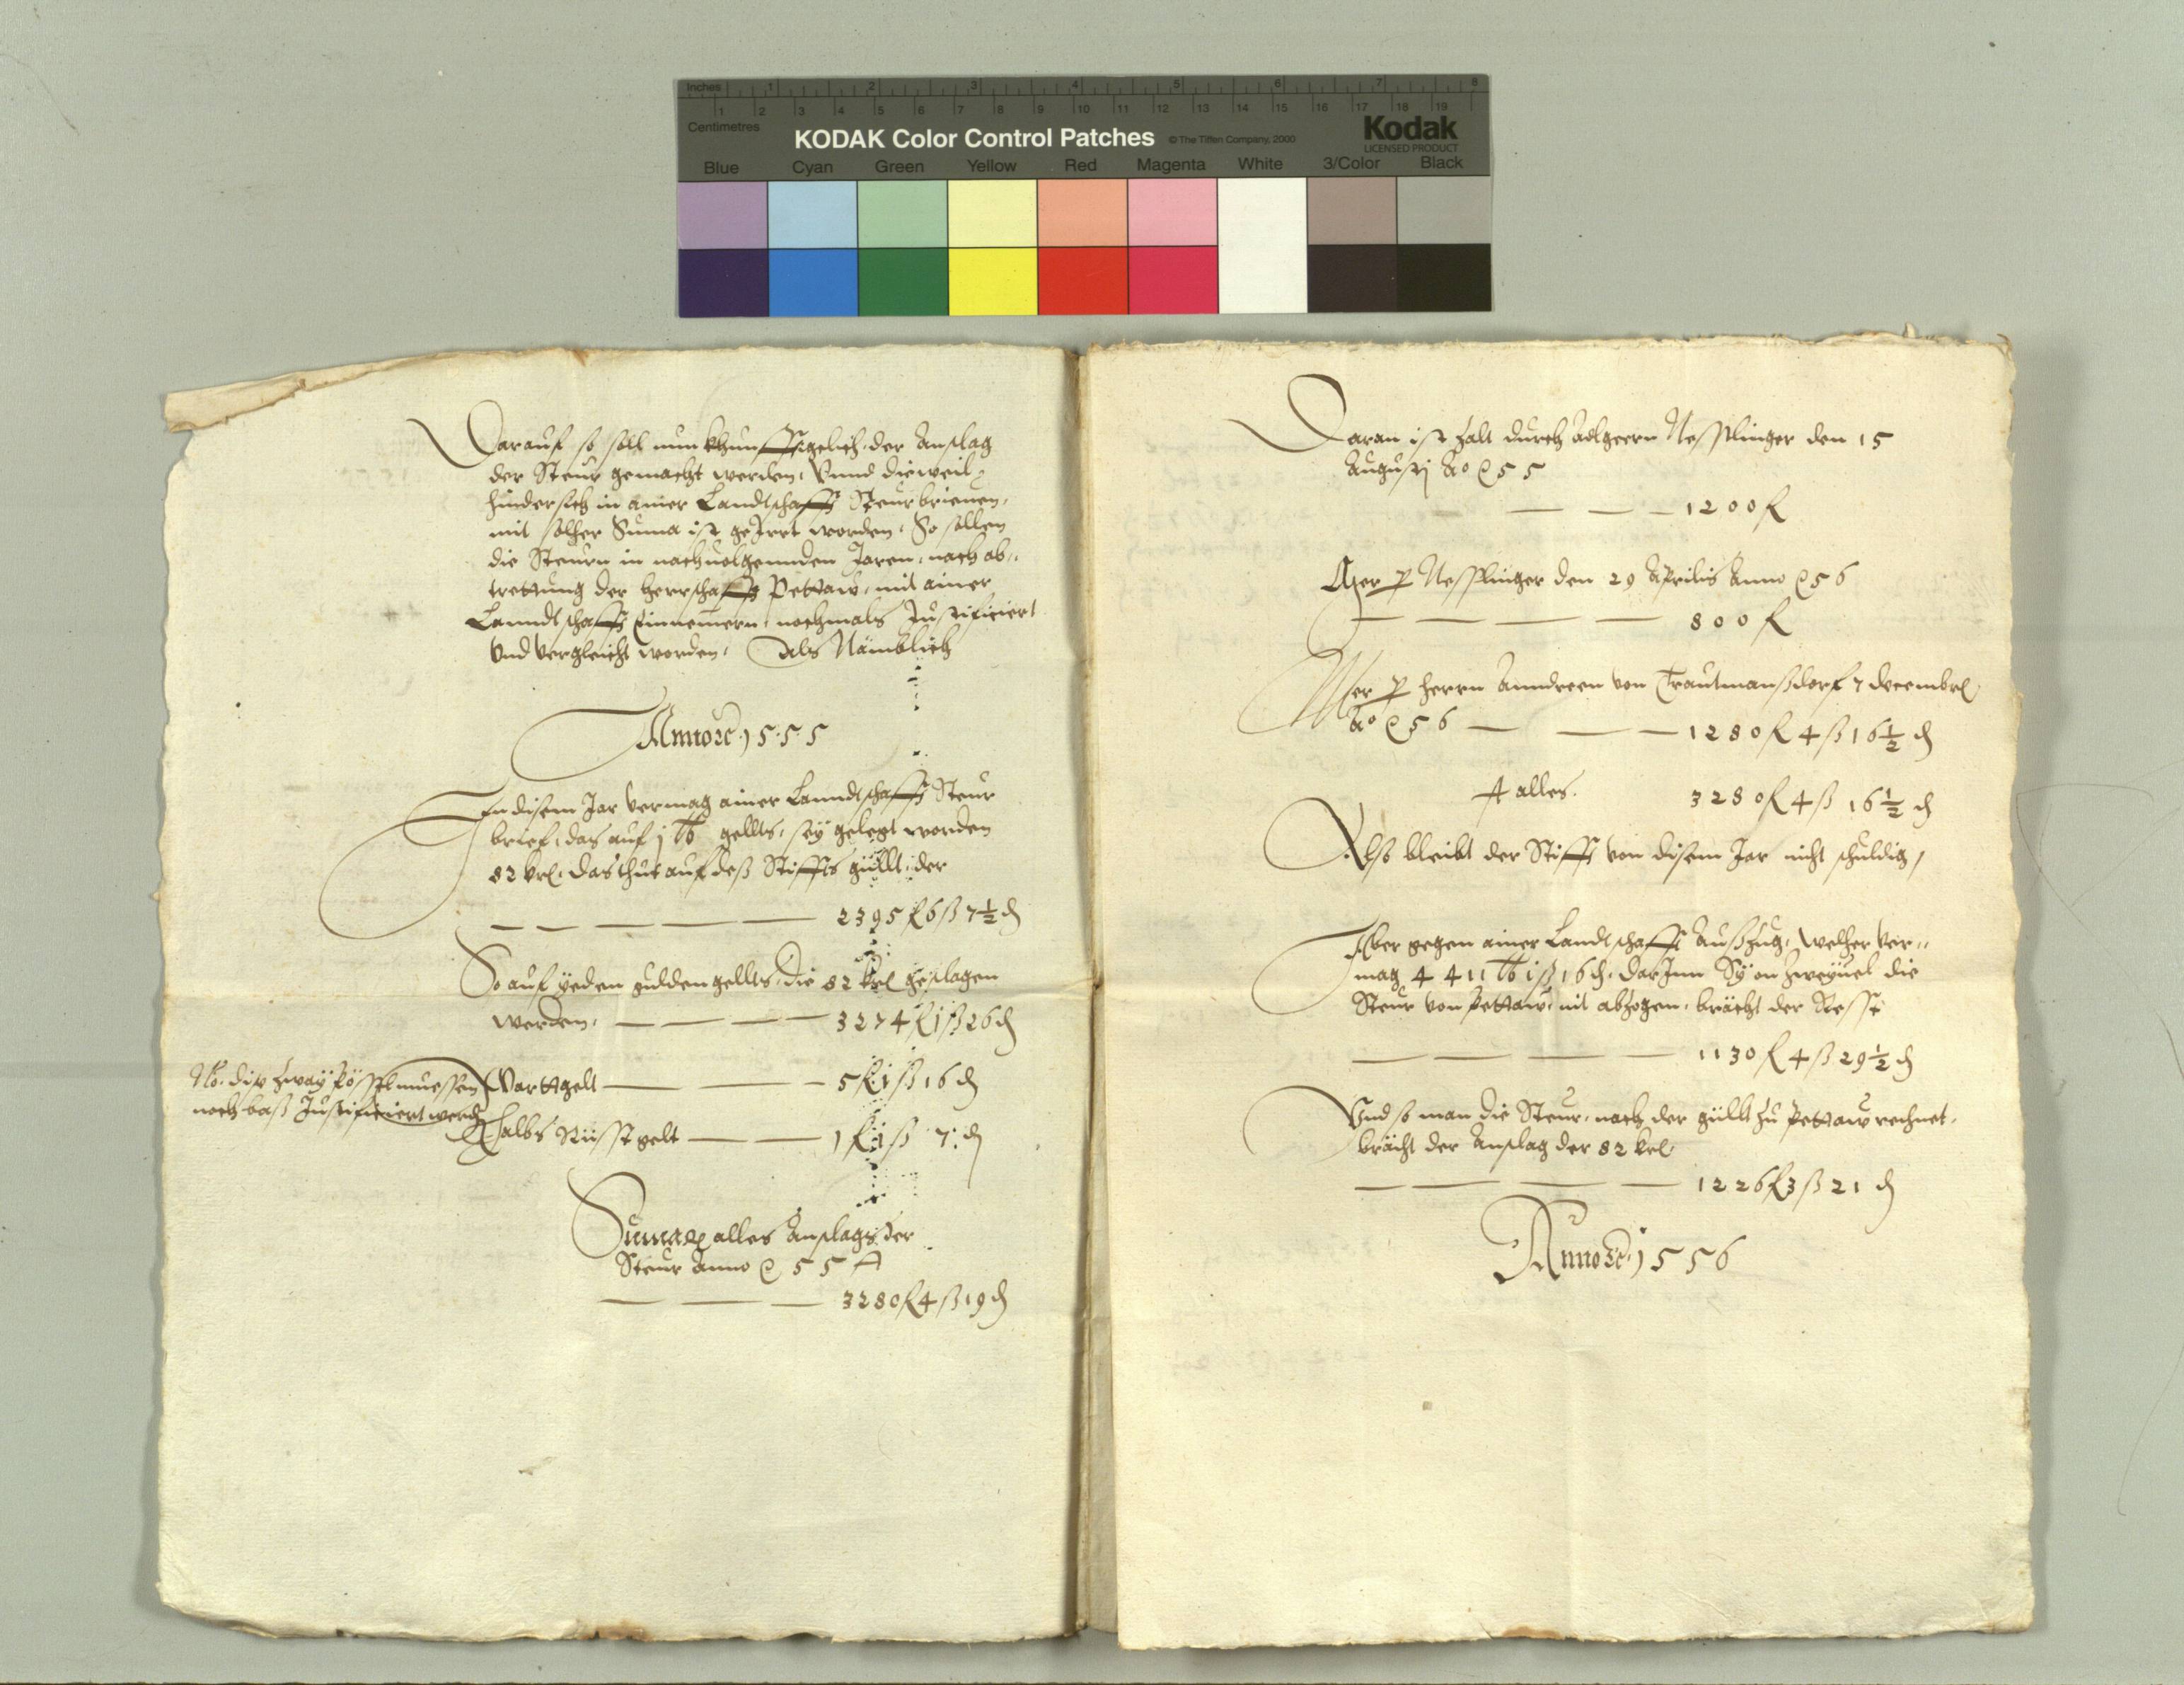 Inches 1 2 3 4 5 6 7 8
1 2 3 4 5 6 7 8 9 10 11 12 13 14 15 16 17 18 19
Centimetres
KODAK Color Control Patches © The Tiffen Company, 2000 Kodak
LICENSED PRODUCT
Blue Cyan Green Yellow Red Magenta White 3/Color Black
Darauf so soll nun khunfftigelich der Anslag
der Steur gemacht werden, Vnnd dieweil
hindersich in ainer Landtschafft Steurbrieuen,
mit solher Suma ist geJrrt worden, So sollen
die Steurn in nachuolgennden Jaren, nach ab„
trettung der herrschafft Pettaw, mit ainer
Lanndtschafft Einnemern, nochmals Justificiert
Vnd verglaicht worden, Als Nämblich
Anno 1555
In disem Jar vermag ainer Lanndtschafft Steur
brief, das auf j ℔ gellts, sey gelegt worden
82 krl. das thut auf deß Stiffts güllt der
— — — — — 2395 f 6 ß 7½ d
So auf yeden gulden gellts, die 82 krl geslagen
werden, — — — — 3274 f 1 ß 26 d
Nb. die zway pösstl muessen
noch baß Justificiert werdn
Warttgelt — — — 5 f 1 ß 16 d
Halbs Rüsstgelt — — 1 f 1 ß 7 d
Suma alles Anslags der
Steur Anno 55
— — — 3280 f 4 ß 19 d
Daran ist zalt durch Nefflinger den 15
Augustj Ao 55
— — — 1200 f
Mer p Nefflinger den 29 Aprilis Anno 56
— — — — 800 f
Mer p herrn Anndreen von Trautmanßdorf 7 decembrl
Ao 56 — — — 1280 f 4 ß 16½ d
alles. 3280 f 4 ß 16½ d
Also bleibt der Stifft von disem Jar nicht schuldig,
Aber gegen ainer Landtschafft Außzug, welher ver„
mag 4411 ℔ 1 ß 16 d. darJnn Sy on zweyuel die
Steur von Pettaw, nit abzogen, brächt der Resst
— — — — 1130 f 4 ß 29½ d
Vnd so man die Steur, nach der güllt zu Pettaw rechnet,
brächt der Anslag der 82 krl.
— — — — 1226 f 3 ß 21 d
Anno 1556